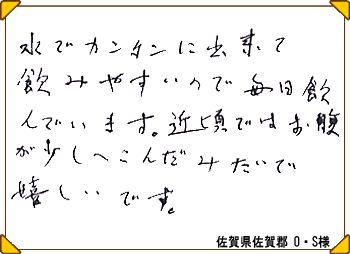 水でカンタンに出来て
飲みやすいので毎日飲
んでいます。近頃ではお腹
が少しへこんだみたいで
嬉しいです。
佐賀県佐賀郡 O・S様